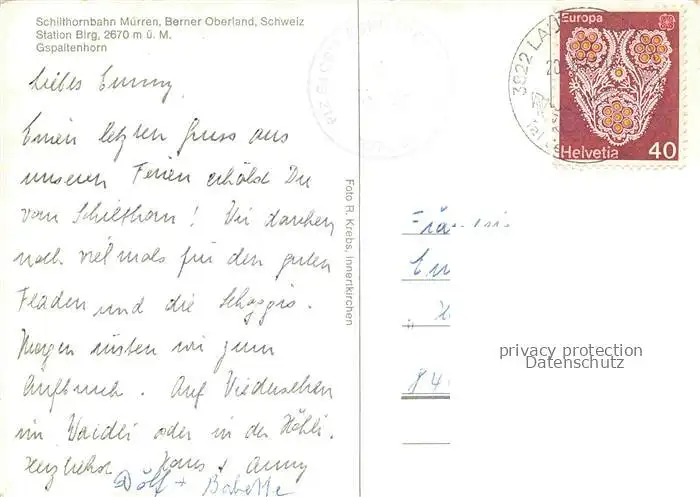 Schilthornbahn Mürren, Berner Oberland, Schweiz
Station Birg, 2670 m ü. M.
Gspaltenhorn
Liebes Emmy
Einen letzten Gruss aus
unseren Ferien erhälst Du
vom Schilthorn! Wir danken
noch vielmals für den guten
Fladen und die Schoggis.
Morgen rüsten wir zum
Aufbruch. Auf Wiedersehen
im Waidli oder in der Höhli.
Herzlichst Hans + Anny
Dölf + Babette
Foto R. Krebs, Innertkirchen
3822 LAU
20
Europa
Helvetia 40
privacy protection
Datenschutz
84